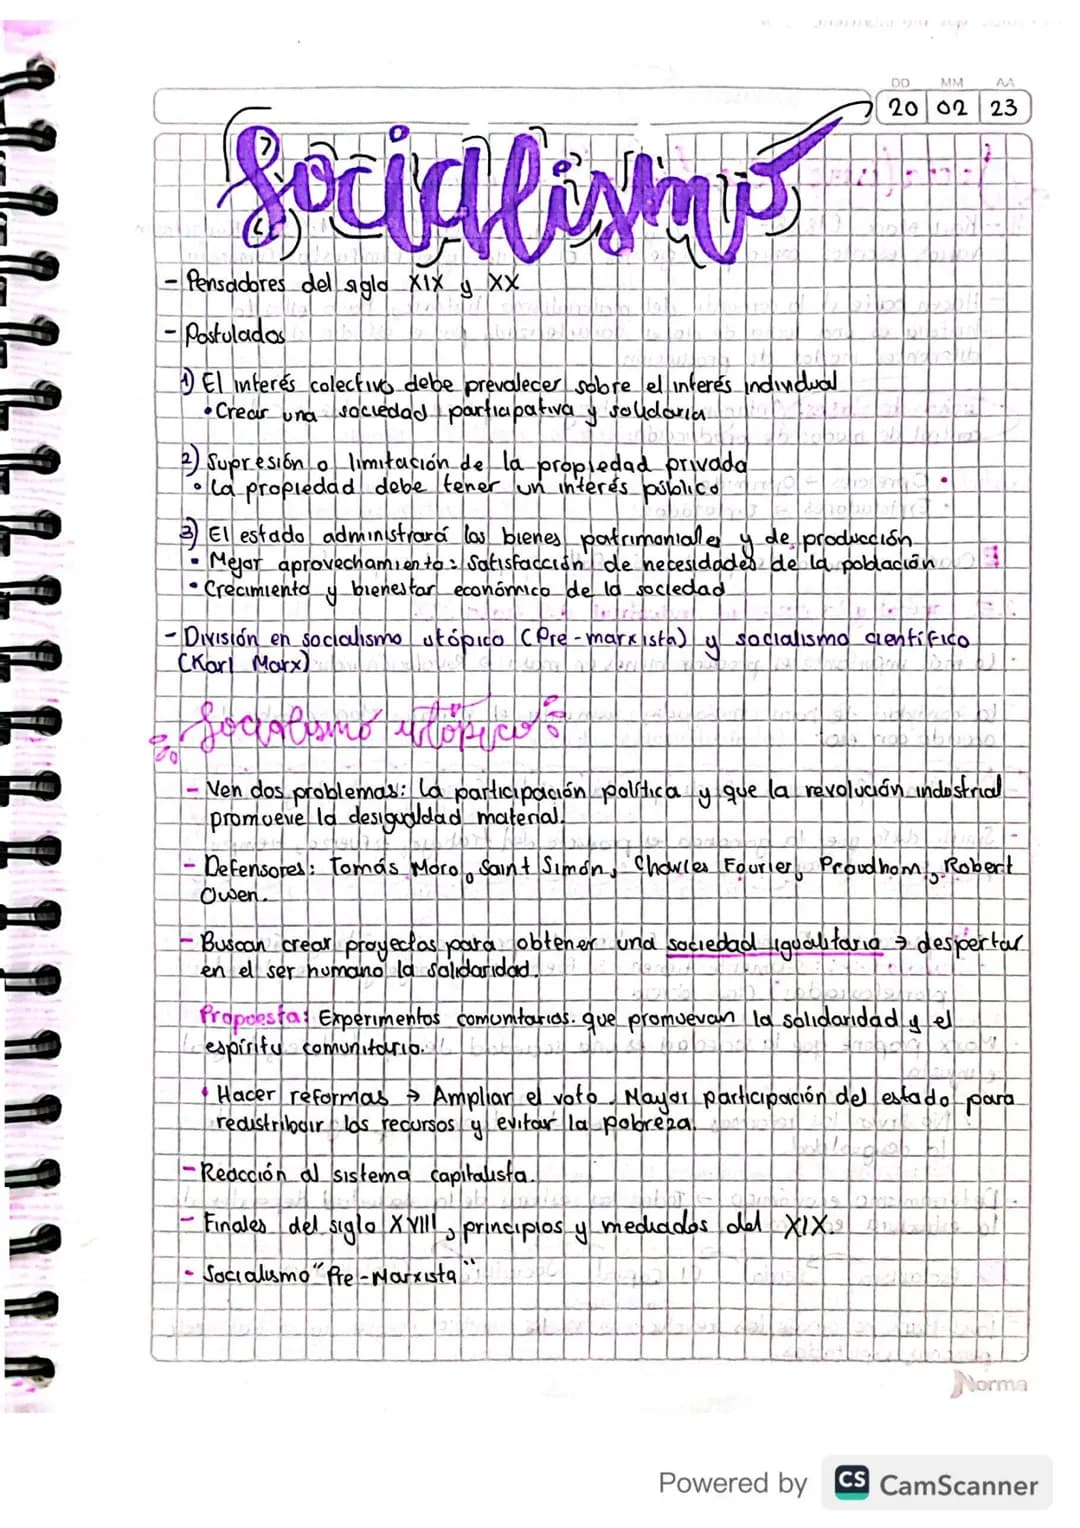 DD MM AA
20 02 23
Socialismo
- Pensadores del siglo XIX y XX
- Postulados
1) El interés colectivo debe prevalecer sobre el interés individual
• Crear una sociedad participativa y solidaria
2) Supresión o limitación de la propiedad privada
• La propiedad debe tener un interés público
3) El estado administrará los bienes patrimoniales y de producción
• Mejor aprovechamiento: Satisfacción de necesidades de la población
• Crecimiento y bienestar económico de la sociedad
- División en socialismo utópico (Pre-marxista) y socialismo científico
(Karl Marx)
Socialismo utópico
- Ven dos problemas: La participación política y que la revolución industrial
promueve la desigualdad material.
- Defensores: Tomás Moro, Saint Simón, Charles Fourier, Proudhom, Robert
Owen.
- Buscan crear proyectos para obtener una sociedad igualitaria → despertar
en el ser humano la solidaridad.
Propuesta: Experimentos comunitarios. que promuevan la solidaridad y el
espíritu comunitario.
• Hacer reformas → Ampliar el voto. Mayor participación del estado para
redistribuir los recursos y evitar la pobreza.
- Reacción al sistema capitalista.
- Finales del siglo XVIII, principios y mediados del XIX.
- Socialismo "Pre-Marxista"
Norma
Powered by CS CamScanner